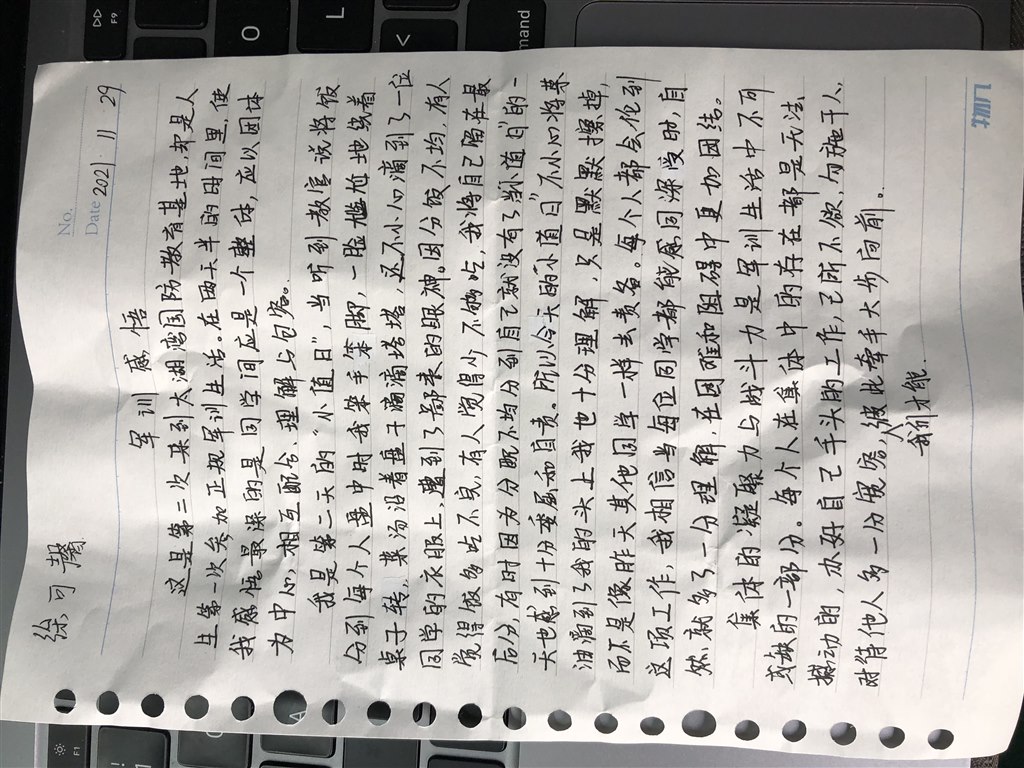 徐可馨
No.
Date 2021. 11. 29
军训感悟
这是第二次来到太湖湾国防教育基地,却是人
生第一次参加正规军训生活。在两天半的时间里,使
我感悟最深的是同学间应是一个整体,应以团体
为中心,相互配合、理解与包容。
我是第二天的“小值日”,当听到教官说将饭
分到每个人盘中时我笨手笨脚,一脸尴尬地绕着
桌子转,菜汤沿着盘子滴滴塔塔,还不小心滴到了一位
同学的衣服上,遭到了鄙夷的眼神。因分饭不均,有人
觉得饭够吃不完,有人觉得少不够吃,我将自己留在最
后分,有时因为分配不均分到自己就没有了。“小值日”的一
天也感到十分委屈和自责。所以今天的“小值日”不小心将菜
油滴到了我的头上我也十分理解,只是默默擦掉,
而不是像昨天其他同学一样去责备。每个人都会轮到
这项工作,我相信当每位同学都能感同深受时,自
然就多了一分理解,在困难和阻碍中更加团结。
集体的凝聚力与战斗力是军训生活中不可
或缺的一部分。每个人在集体中的存在都是无法
撼动的,办好自己手头的工作,己所不欲,勿施于人,
对待他人多一份宽容,我们才能彼此牵手大步向前。